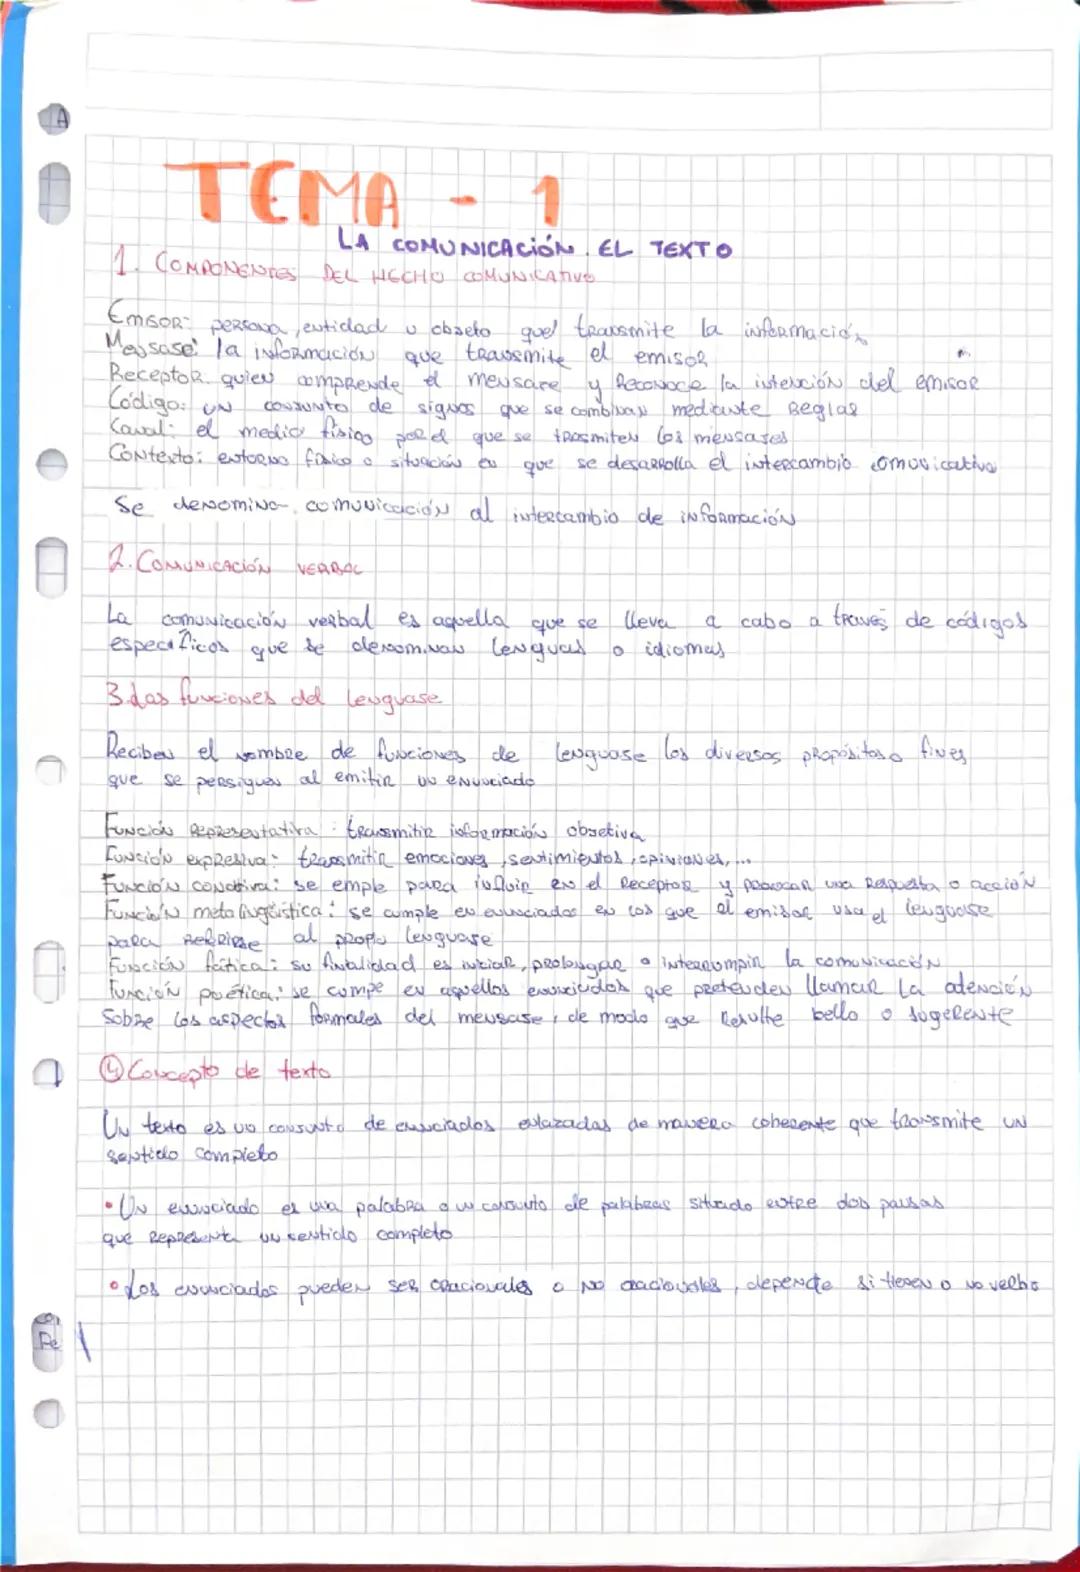 TEMA - 1
LA COMUNICACIÓN. EL TEXTO
1. COMPONENTES DEL HECHO COMUNICATIVO
Emisor: persona, entidad u objeto que transmite la información
Mensaje: la información que transmite el emisor
Receptor: quien comprende el mensaje y reconoce la intención del emisor
Código: un conjunto de signos que se combinan mediante reglas
Canal: el medio físico por el que se trasmiten los mensajes
Contexto: entorno físico o situación en que se desarrolla el intercambio comunicativo
Se denomina comunicación al intercambio de información
2. COMUNICACIÓN VERBAL
La comunicación verbal es aquella que se lleva a cabo a través de códigos
específicos que se denominan lenguas o idiomas
3. Las funciones del lenguaje
Reciben el nombre de funciones de lenguaje los diversos propósitos o fines
que se persiguen al emitir un enunciado
Función representativa: transmitir información objetiva
Función expresiva: transmitir emociones, sentimientos, opiniones, ...
Función conativa: se emple para influir en el receptor y provocar una respuesta o acción
Función metalingüística: se cumple en enunciados en los que el emisor usa el lenguaje
para referirse al propio lenguaje
Función fática: su finalidad es iniciar, prolongar o interrumpir la comunicación
Función poética: se cumpe en aquellos enunciados que pretenden llamar la atención
sobre los aspectos formales del mensaje, de modo que resulte bello o sugerente
4 Concepto de texto
Un texto es un conjunto de enunciados enlazados de manera coherente que transmite un
sentido completo
• Un enunciado es una palabra o un conjunto de palabras situado entre dos pausas
que representa un sentido completo
• Los enunciados pueden ser oracionales o no oracionales, depende si tienen o no verbo